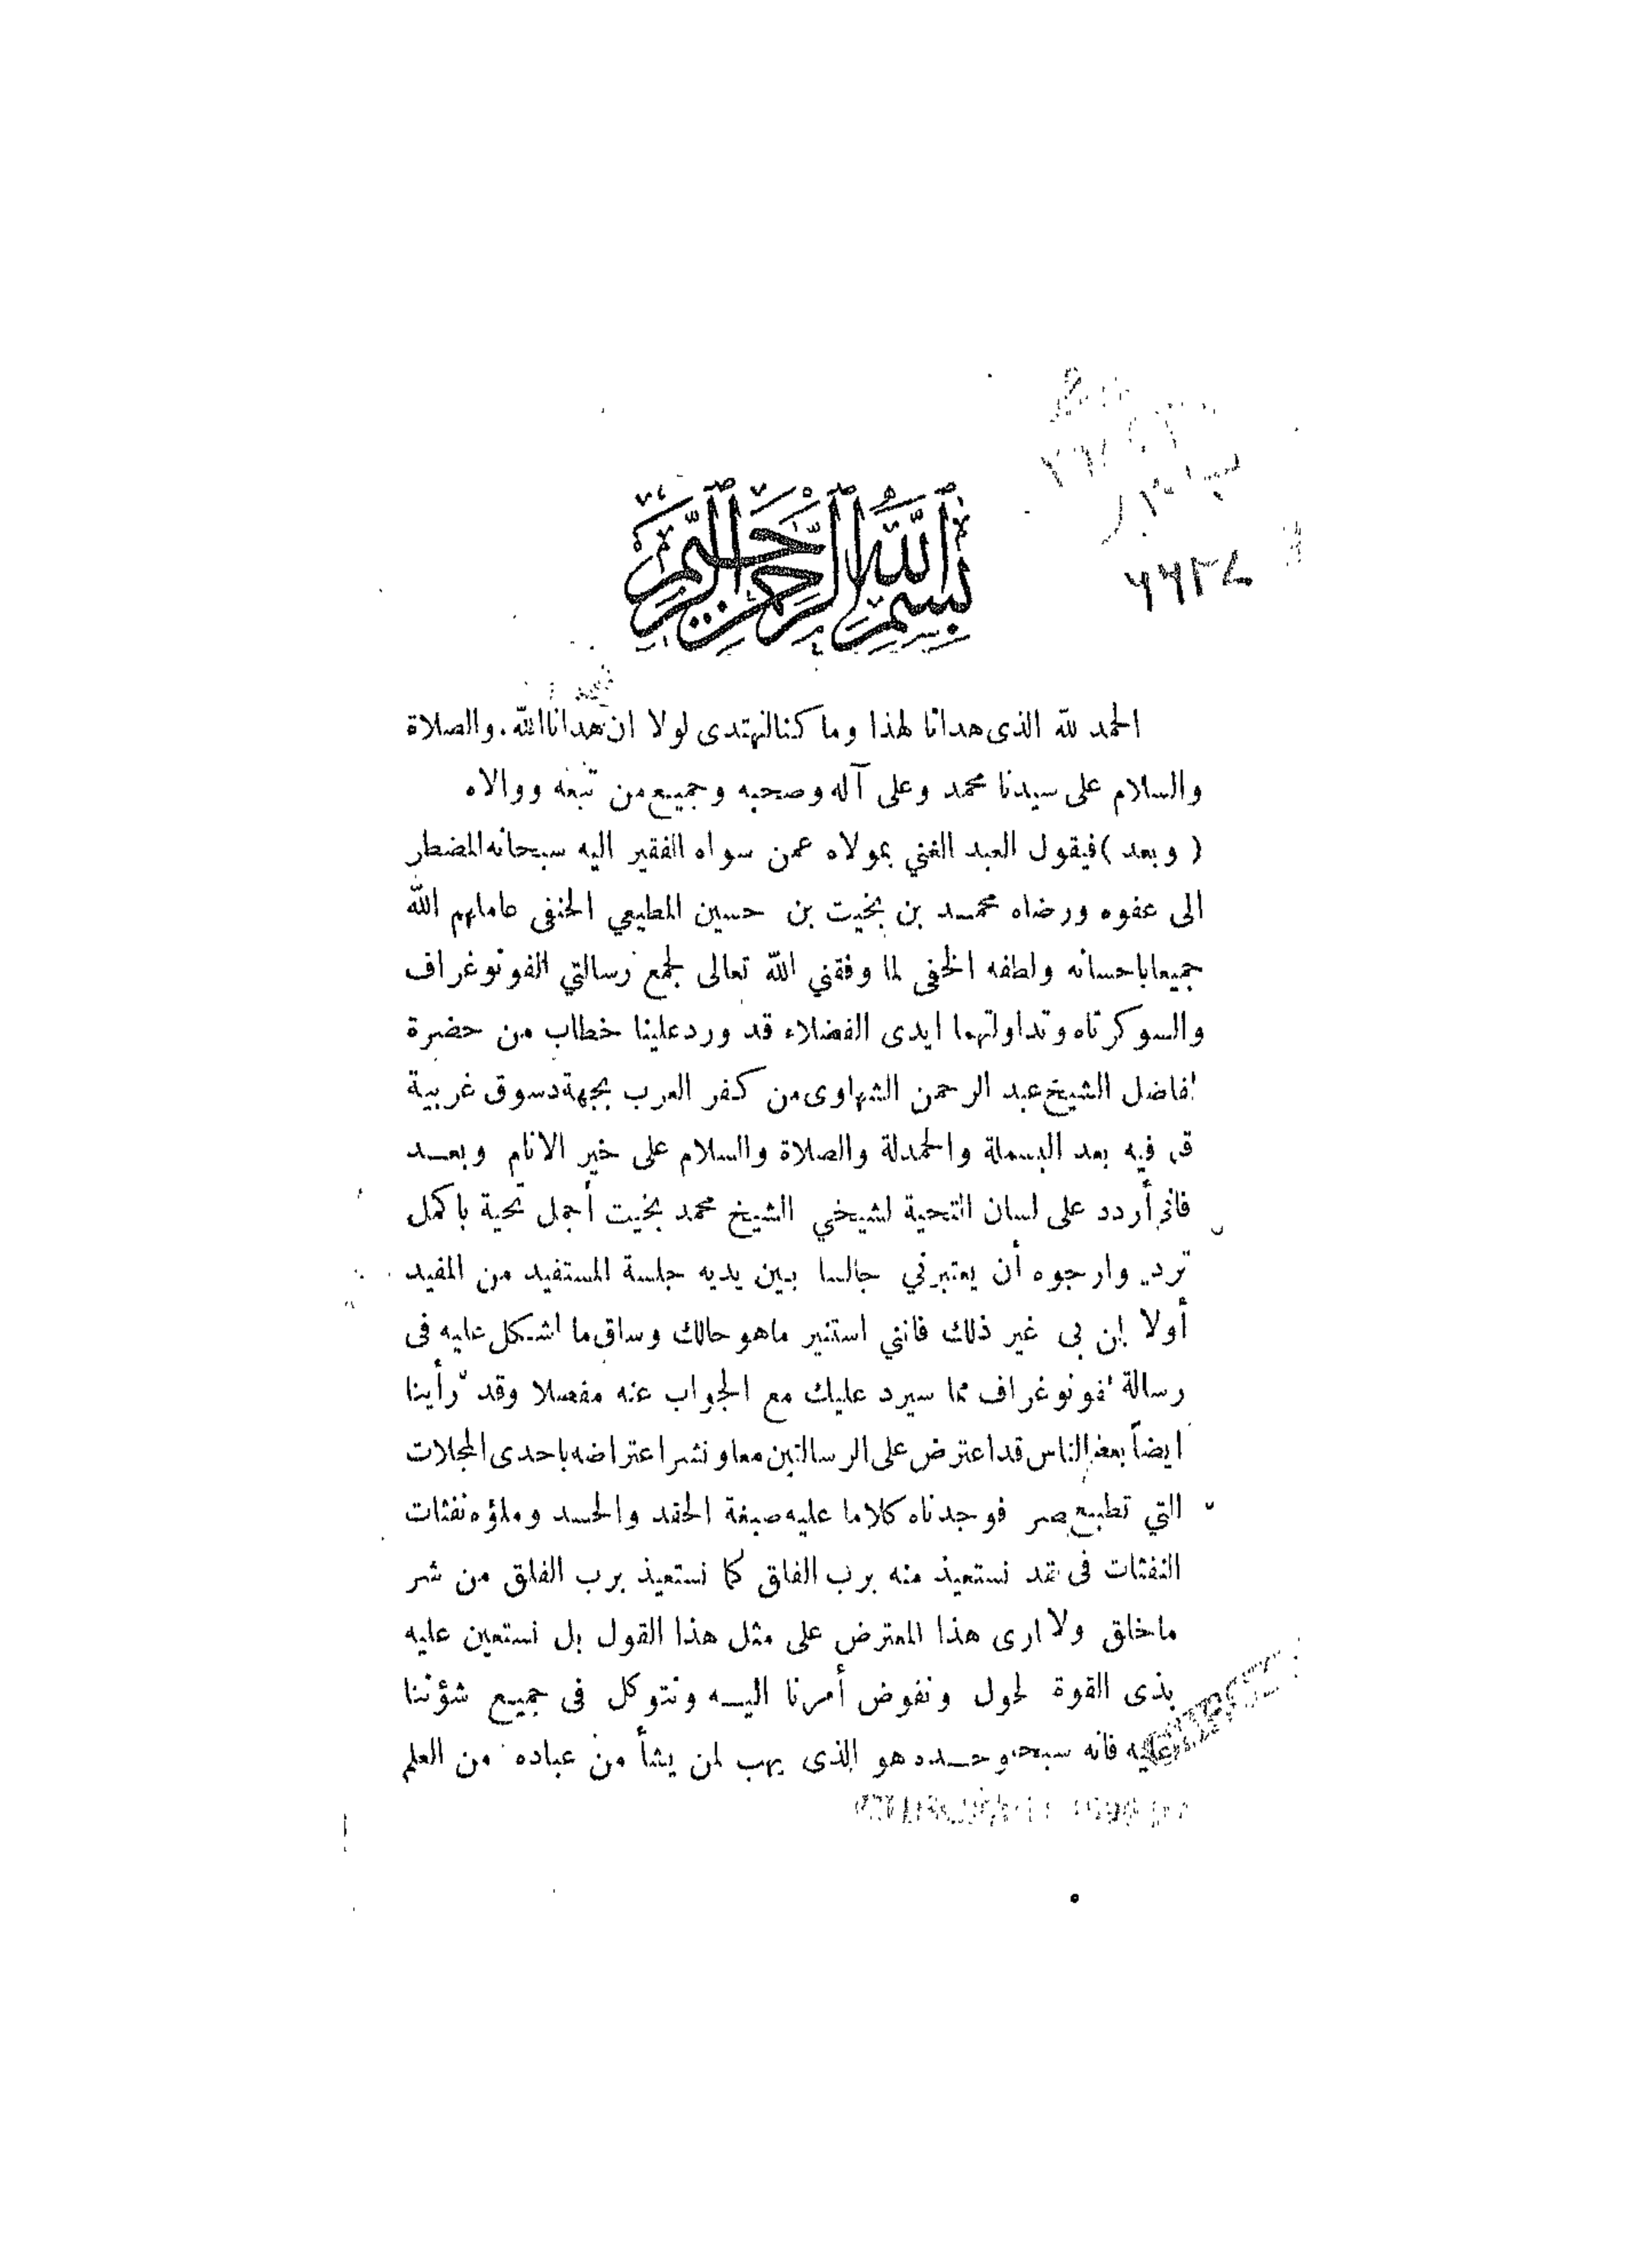 بسم الله الرحمن الرحيم
٦٦٣٨
الحمد لله الذى هدانا لهذا وما كنا لنهتدى لولا ان هدانا الله . والصلاة
والسلام على سيدنا محمد وعلى آله وصحبه وجميع من تبعه ووالاه
( وبعد ) فيقول العبد الغني بمولاه عمن سواه الفقير اليه سبحانه المضطر
الى عفوه ورضاه محمد بن بخيت بن حسين المطيعي الحنفى عاملهم الله
جميعا باحسانه ولطفه الخفى لما وفقني الله تعالى لجمع رسالتي الفونوغراف
والسوكرتاه وتداولتهما ايدى الفضلاء قد ورد علينا خطاب من حضرة
الفاضل الشيخ عبد الرحمن الشهاوى من كفر العرب بجهة دسوق غربية
قال فيه بعد البسملة والحمدلة والصلاة والسلام على خير الانام وبعد
فانى أردد على لسان التحية لشيخي الشيخ محمد بخيت أجمل تحية باكمل
ترد وارجوه أن يعتبرني جالسا بين يديه جلسة المستفيد من المفيد
أولا إن بى غير ذلك فانني استنير ماهو حالك وساق ما اشكل عليه فى
رسالة الفونوغراف مما سيرد عليك مع الجواب عنه مفصلا وقد رأينا
ايضاً بعض الناس قد اعترض على الرسالتين معا ونشر اعتراضه باحدى المجلات
التي تطبع بمصر فوجدناه كلاما عليه صبغة الحقد والحسد وملؤه نفثات
النفثات فى عقد نستعيذ منه برب الفلق كما نستعيذ برب الفلق من شر
ما خلق ولا ارى هذا المعترض على مثل هذا القول بل نستعين عليه
بذى القوة لحول ونفوض أمرنا اليه ونتوكل فى جميع شؤننا
عليه فانه سبحانه وحده هو الذى يهب لمن يشأ من عباده من العلم